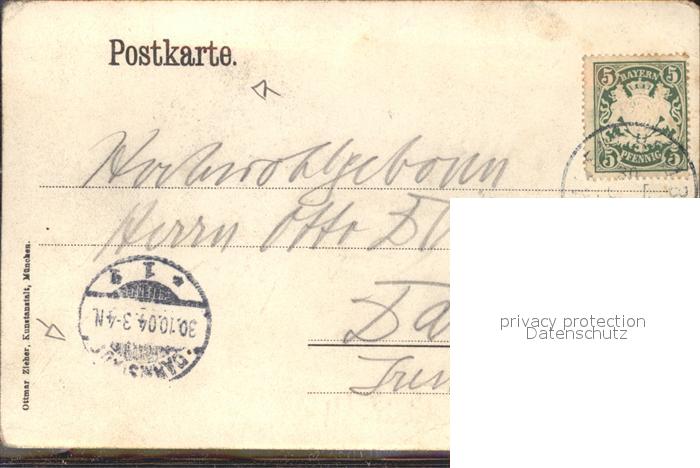 Postkarte.
5 5
BAYERN
5 PFENNIG 5
Hochwohlgeborn
Herrn Otto
Da
30.10.04 3-4 N.
DARMST
Ottmar Zieher, Kunstanstalt, München.
privacy protection
Datenschutz